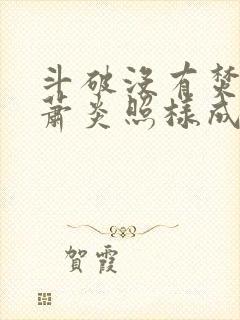 斗破没有焚
萧炎照样成
賀霞